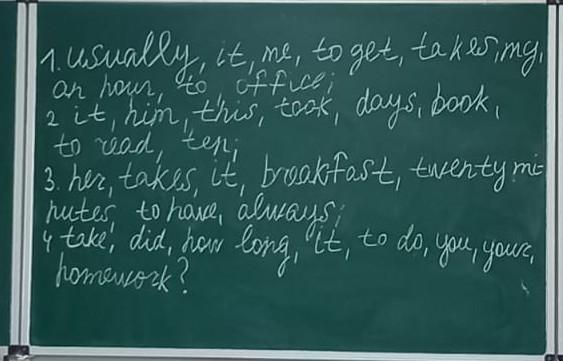 1. usually, it, me, to get, takes, my,
an hour, to office;
2 it, him, this, took, days, book,
to read, ten;
3. her, takes, it, breakfast, twenty mi-
nutes, to have, always;
4 take, did, how long, it, to do, you, your,
homework?